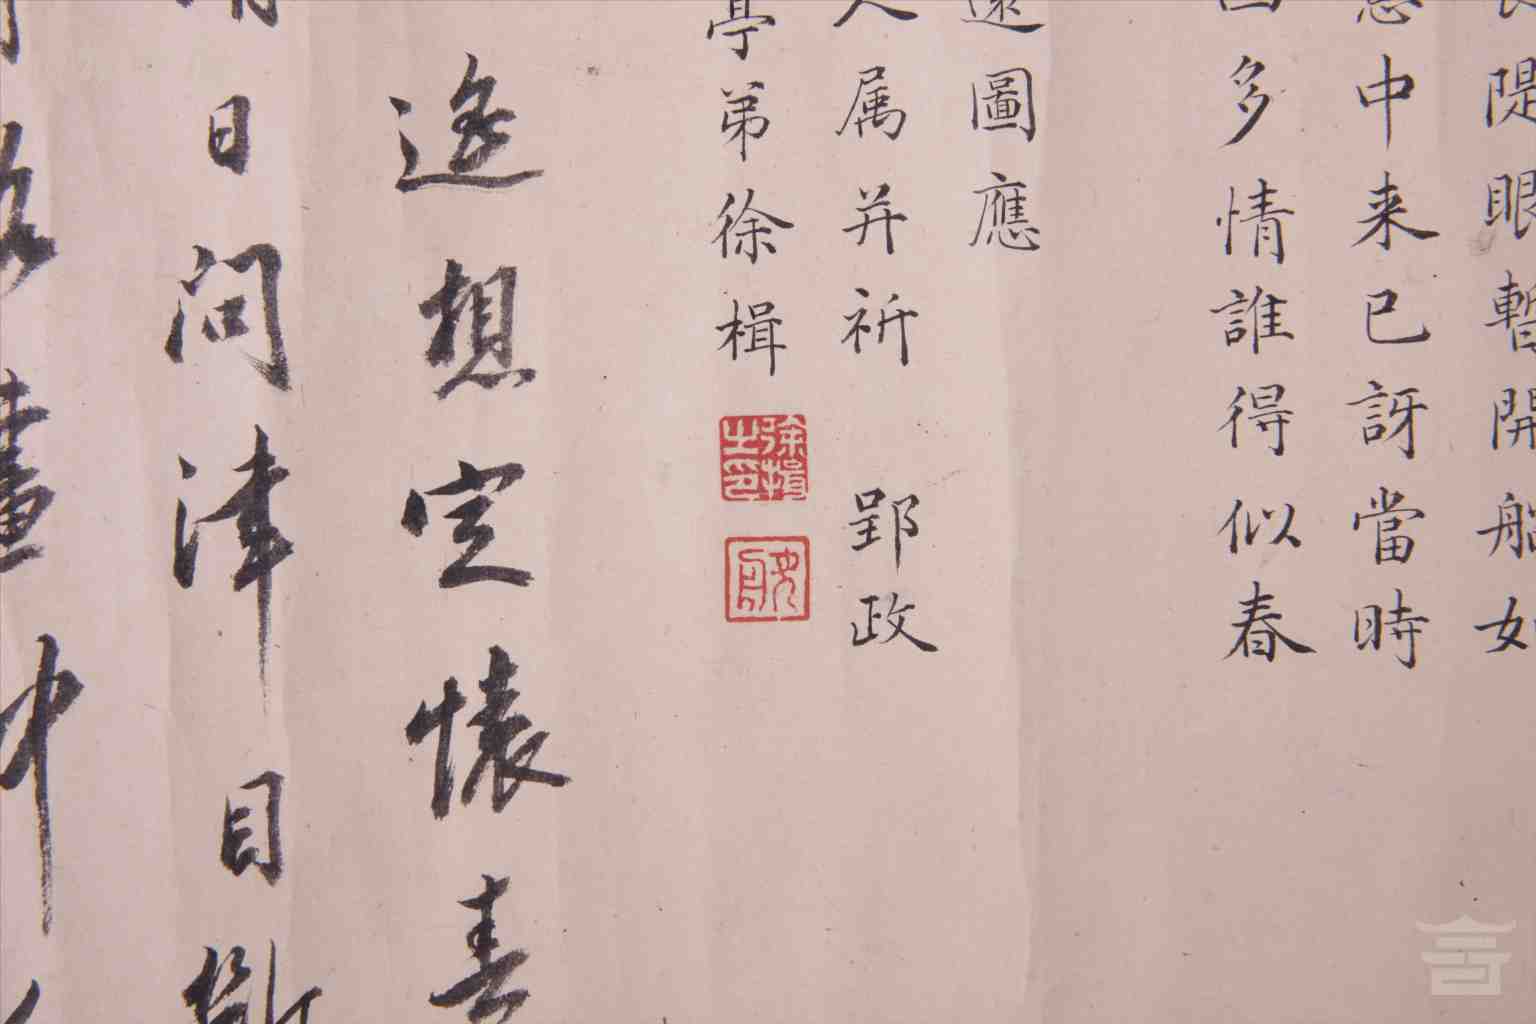 隄眼暫開船如
中来已訝當時
多情誰得似春
遠圖應
人属并祈 郢政
亭弟徐楫
徐楫之印
遥想定懷春
日問津目斷
畫中